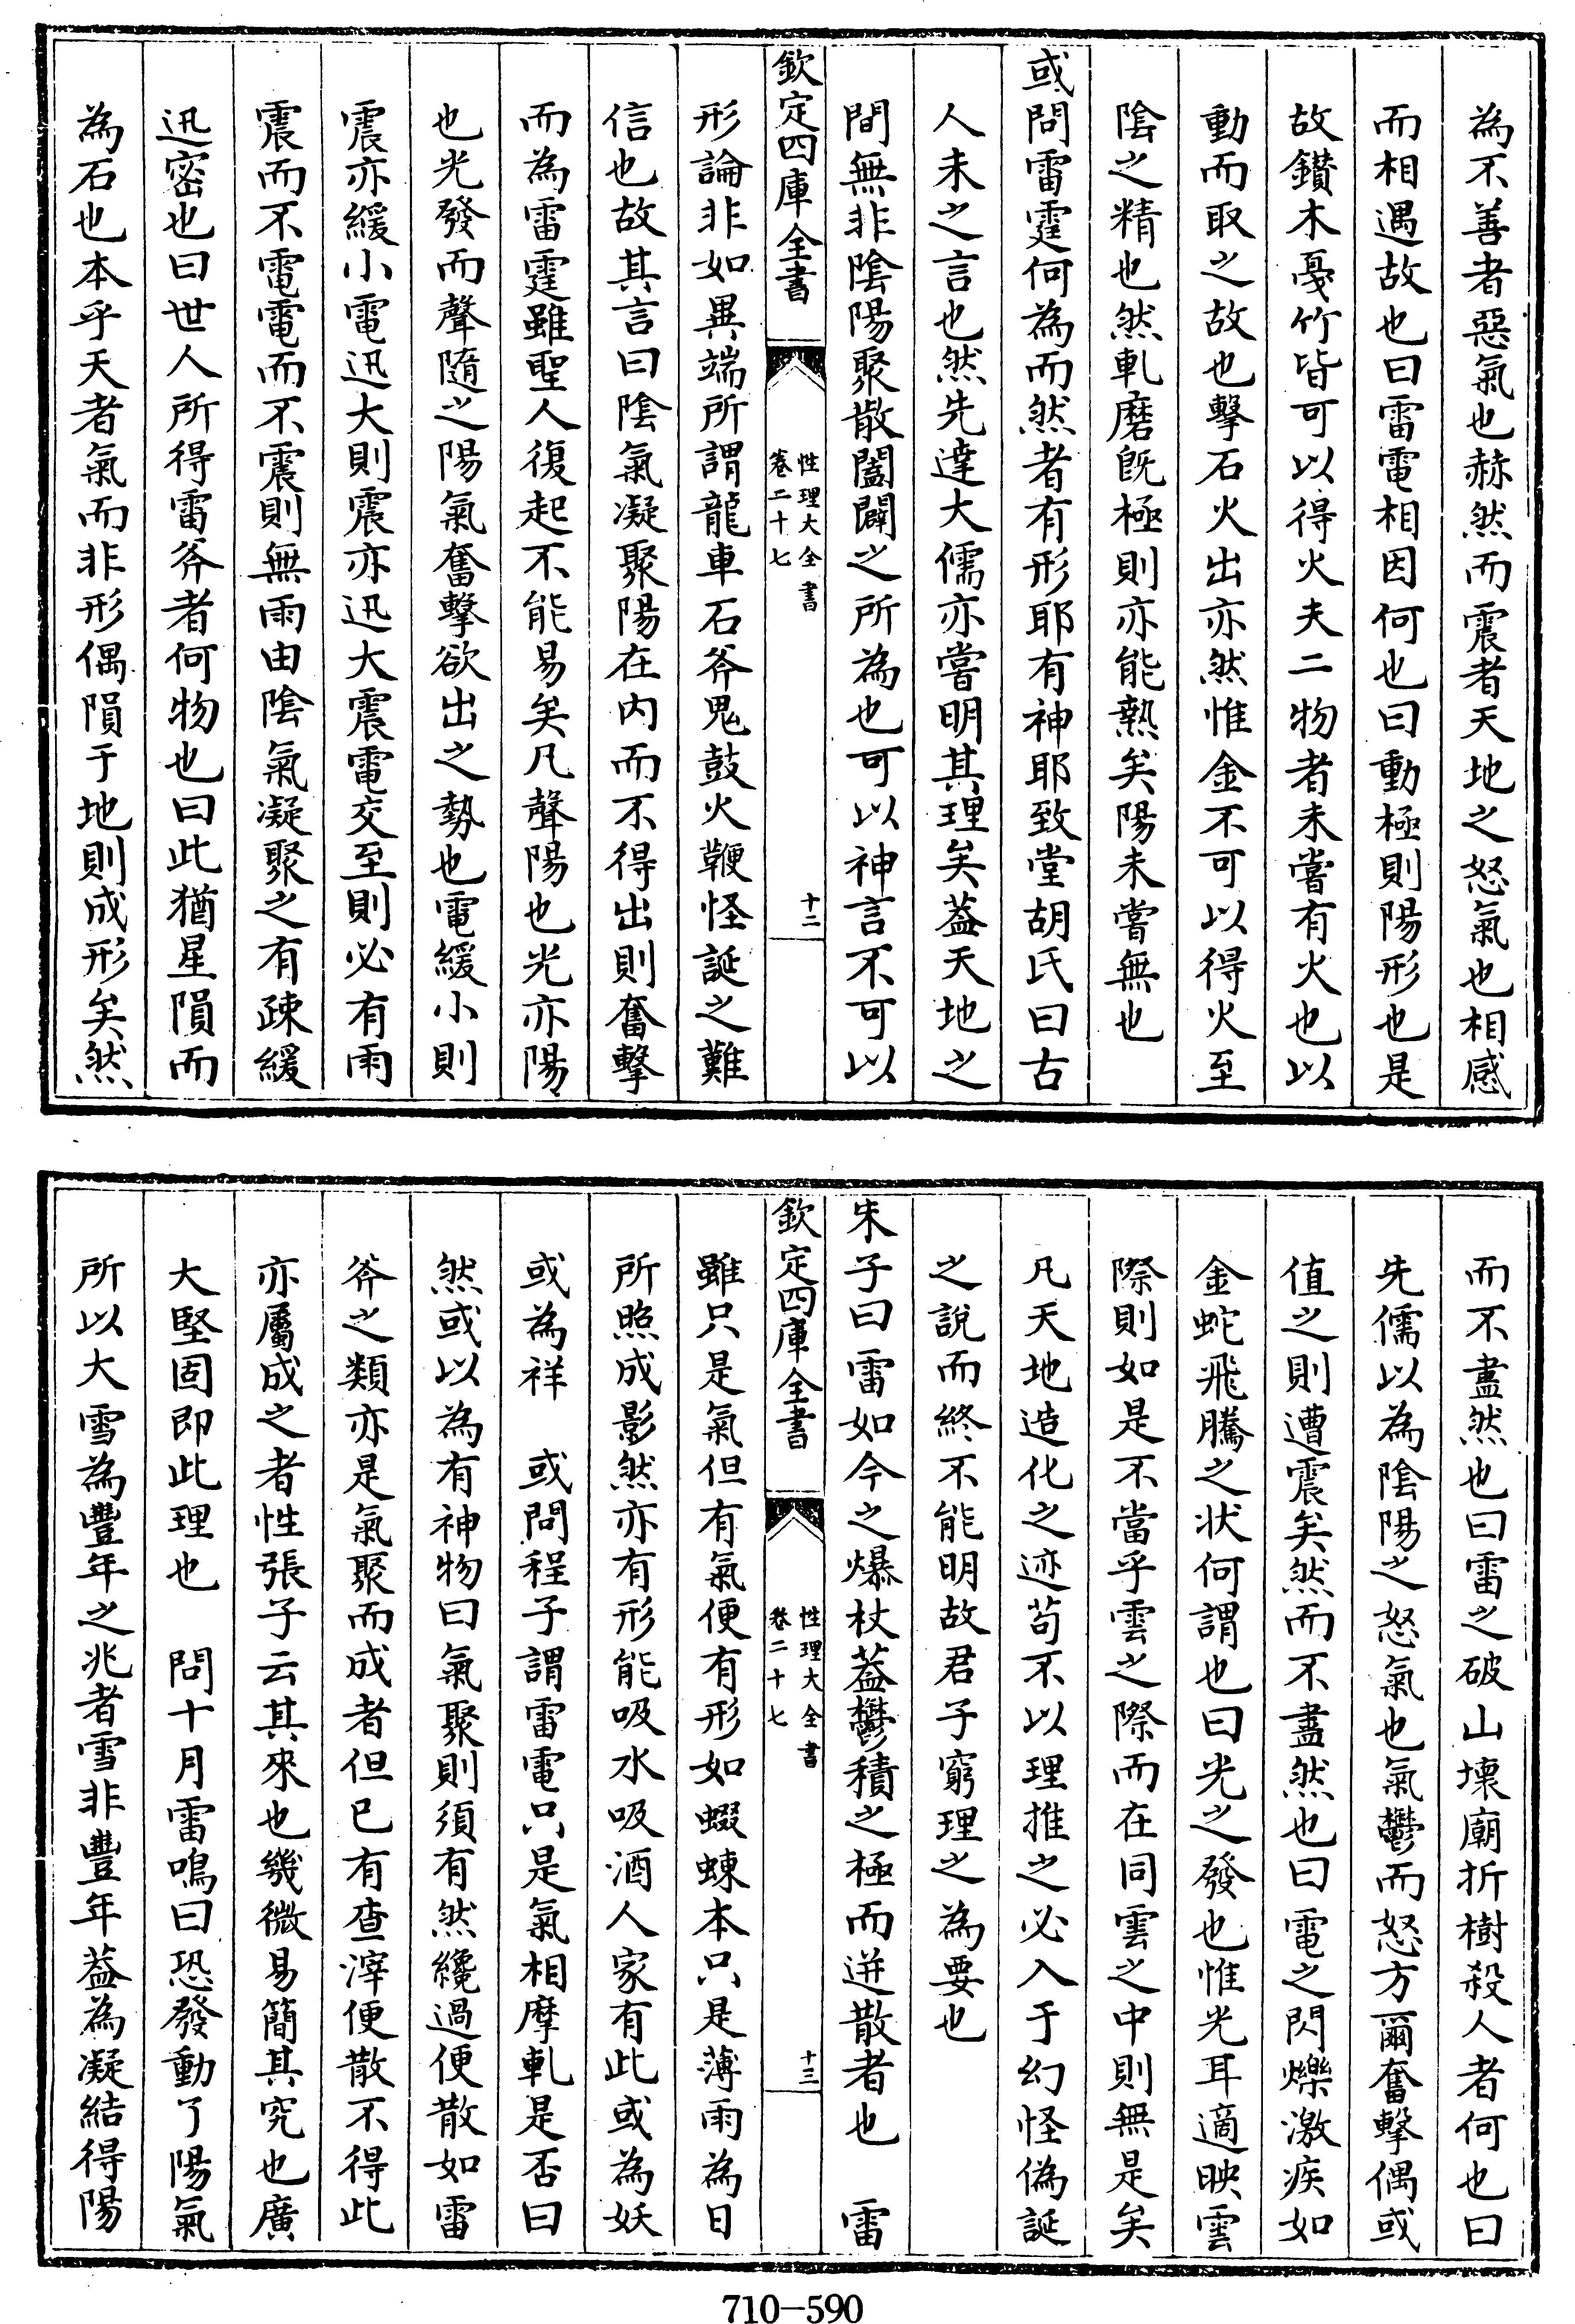 為不善者惡氣也赫然而震者天地之怒氣也相感
而相遇故也曰雷電相因何也曰動極則陽形也是
故鑚木戞竹皆可以得火夫二物者未嘗有火也以
動而取之故也擊石火出亦然惟金不可以得火至
陰之精也然軋磨既極則亦能熱矣陽未嘗無也
或問雷霆何為而然者有形耶有神耶致堂胡氏曰古
人未之言也然先達大儒亦嘗明其理矣葢天地之
間無非陰陽聚散闔闢之所為也可以神言不可以
欽定四庫全書
性理大全書
卷二十七
十二
形論非如異端所謂龍車石斧鬼鼓火鞭怪誕之難
信也故其言曰陰氣凝聚陽在内而不得出則奮擊
而為雷霆雖聖人復起不能易矣凡聲陽也光亦陽
也光發而聲隨之陽氣奮擊欲出之勢也電緩小則
震亦緩小電迅大則震亦迅大震電交至則必有雨
震而不電電而不震則無雨由陰氣凝聚之有疎緩
迅密也曰世人所得雷斧者何物也曰此猶星隕而
為石也本乎天者氣而非形偶隕于地則成形矣然
而不盡然也曰雷之破山壊廟折樹殺人者何也曰
先儒以為陰陽之怒氣也氣鬱而怒方爾奮擊偶或
值之則遭震矣然而不盡然也曰電之閃爍激疾如
金蛇飛騰之状何謂也曰光之發也惟光耳適映雲
際則如是不當乎雲之際而在同雲之中則無是矣
凡天地造化之迹茍不以理推之必入于幻怪偽誕
之說而終不能明故君子窮理之為要也
朱子曰雷如今之爆杖葢鬱積之極而迸散者也　雷
欽定四庫全書
性理大全書
卷二十七
十三
雖只是氣但有氣便有形如蝃蝀本只是薄雨為日
所照成影然亦有形能吸水吸酒人家有此或為妖
或為祥　或問程子謂雷電只是氣相摩軋是否曰
然或以為有神物曰氣聚則須有然纔過便散如雷
斧之類亦是氣聚而成者但已有查滓便散不得此
亦屬成之者性張子云其來也幾微易簡其究也廣
大堅固即此理也　問十月雷鳴曰恐發動了陽氣
所以大雪為豐年之兆者雪非豐年葢為凝結得陽
710-590